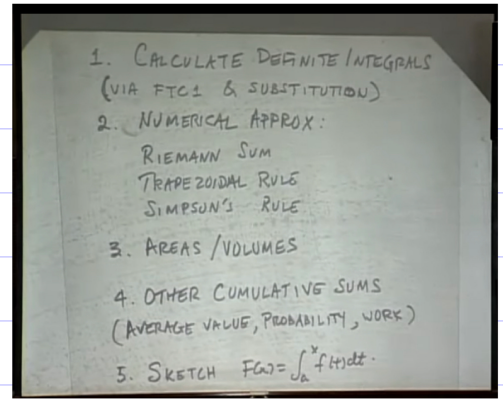 1. CALCULATE DEFINITE INTEGRALS
(VIA FTC1 & SUBSTITUTION)
2. NUMERICAL APPROX:
RIEMANN SUM
TRAPEZOIDAL RULE
SIMPSON'S RULE
3. AREAS/VOLUMES
4. OTHER CUMULATIVE SUMS
(AVERAGE VALUE, PROBABILITY, WORK)
5. SKETCH F(x) = ∫ₐˣ f(t)dt.